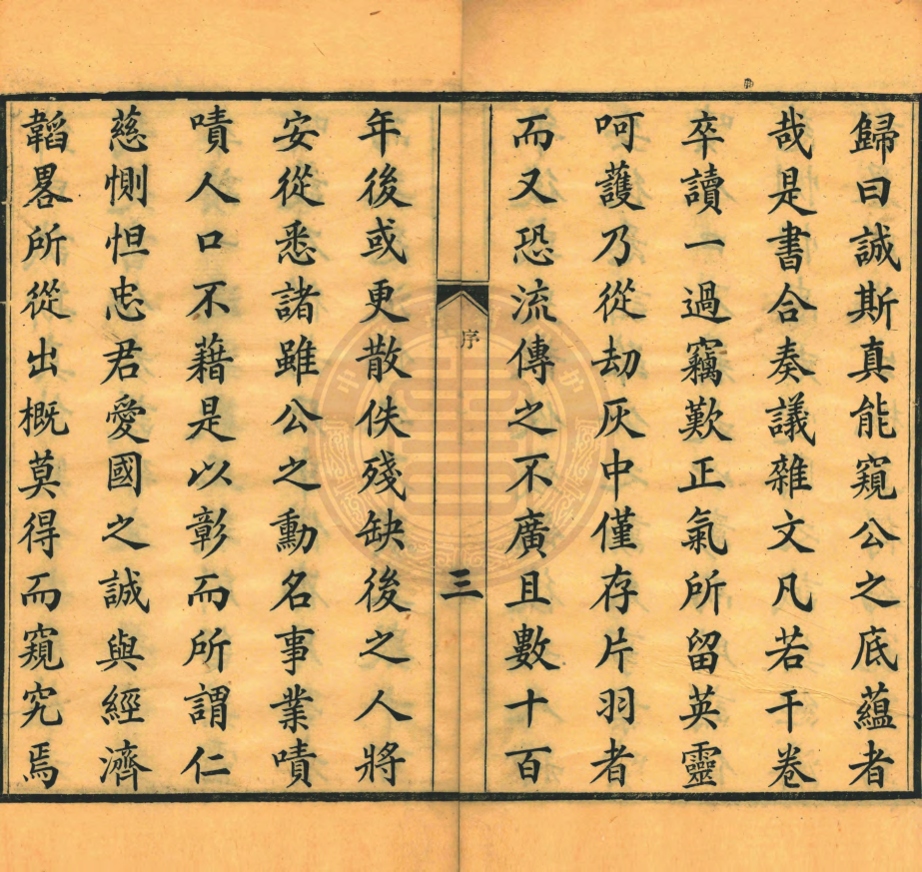 歸曰誠斯真能窺公之底蘊者
哉是書合奏議雜文凡若干卷
卒讀一過竊歎正氣所留英靈
呵護乃從劫灰中僅存片羽者
而又恐流傳之不廣且數十百
序
三
年後或更散佚殘缺後之人將
安從悉諸雖公之勳名事業嘖
嘖人口不藉是以彰而所謂仁
慈惻怛忠君愛國之誠與經濟
韜畧所從出概莫得而窺究焉